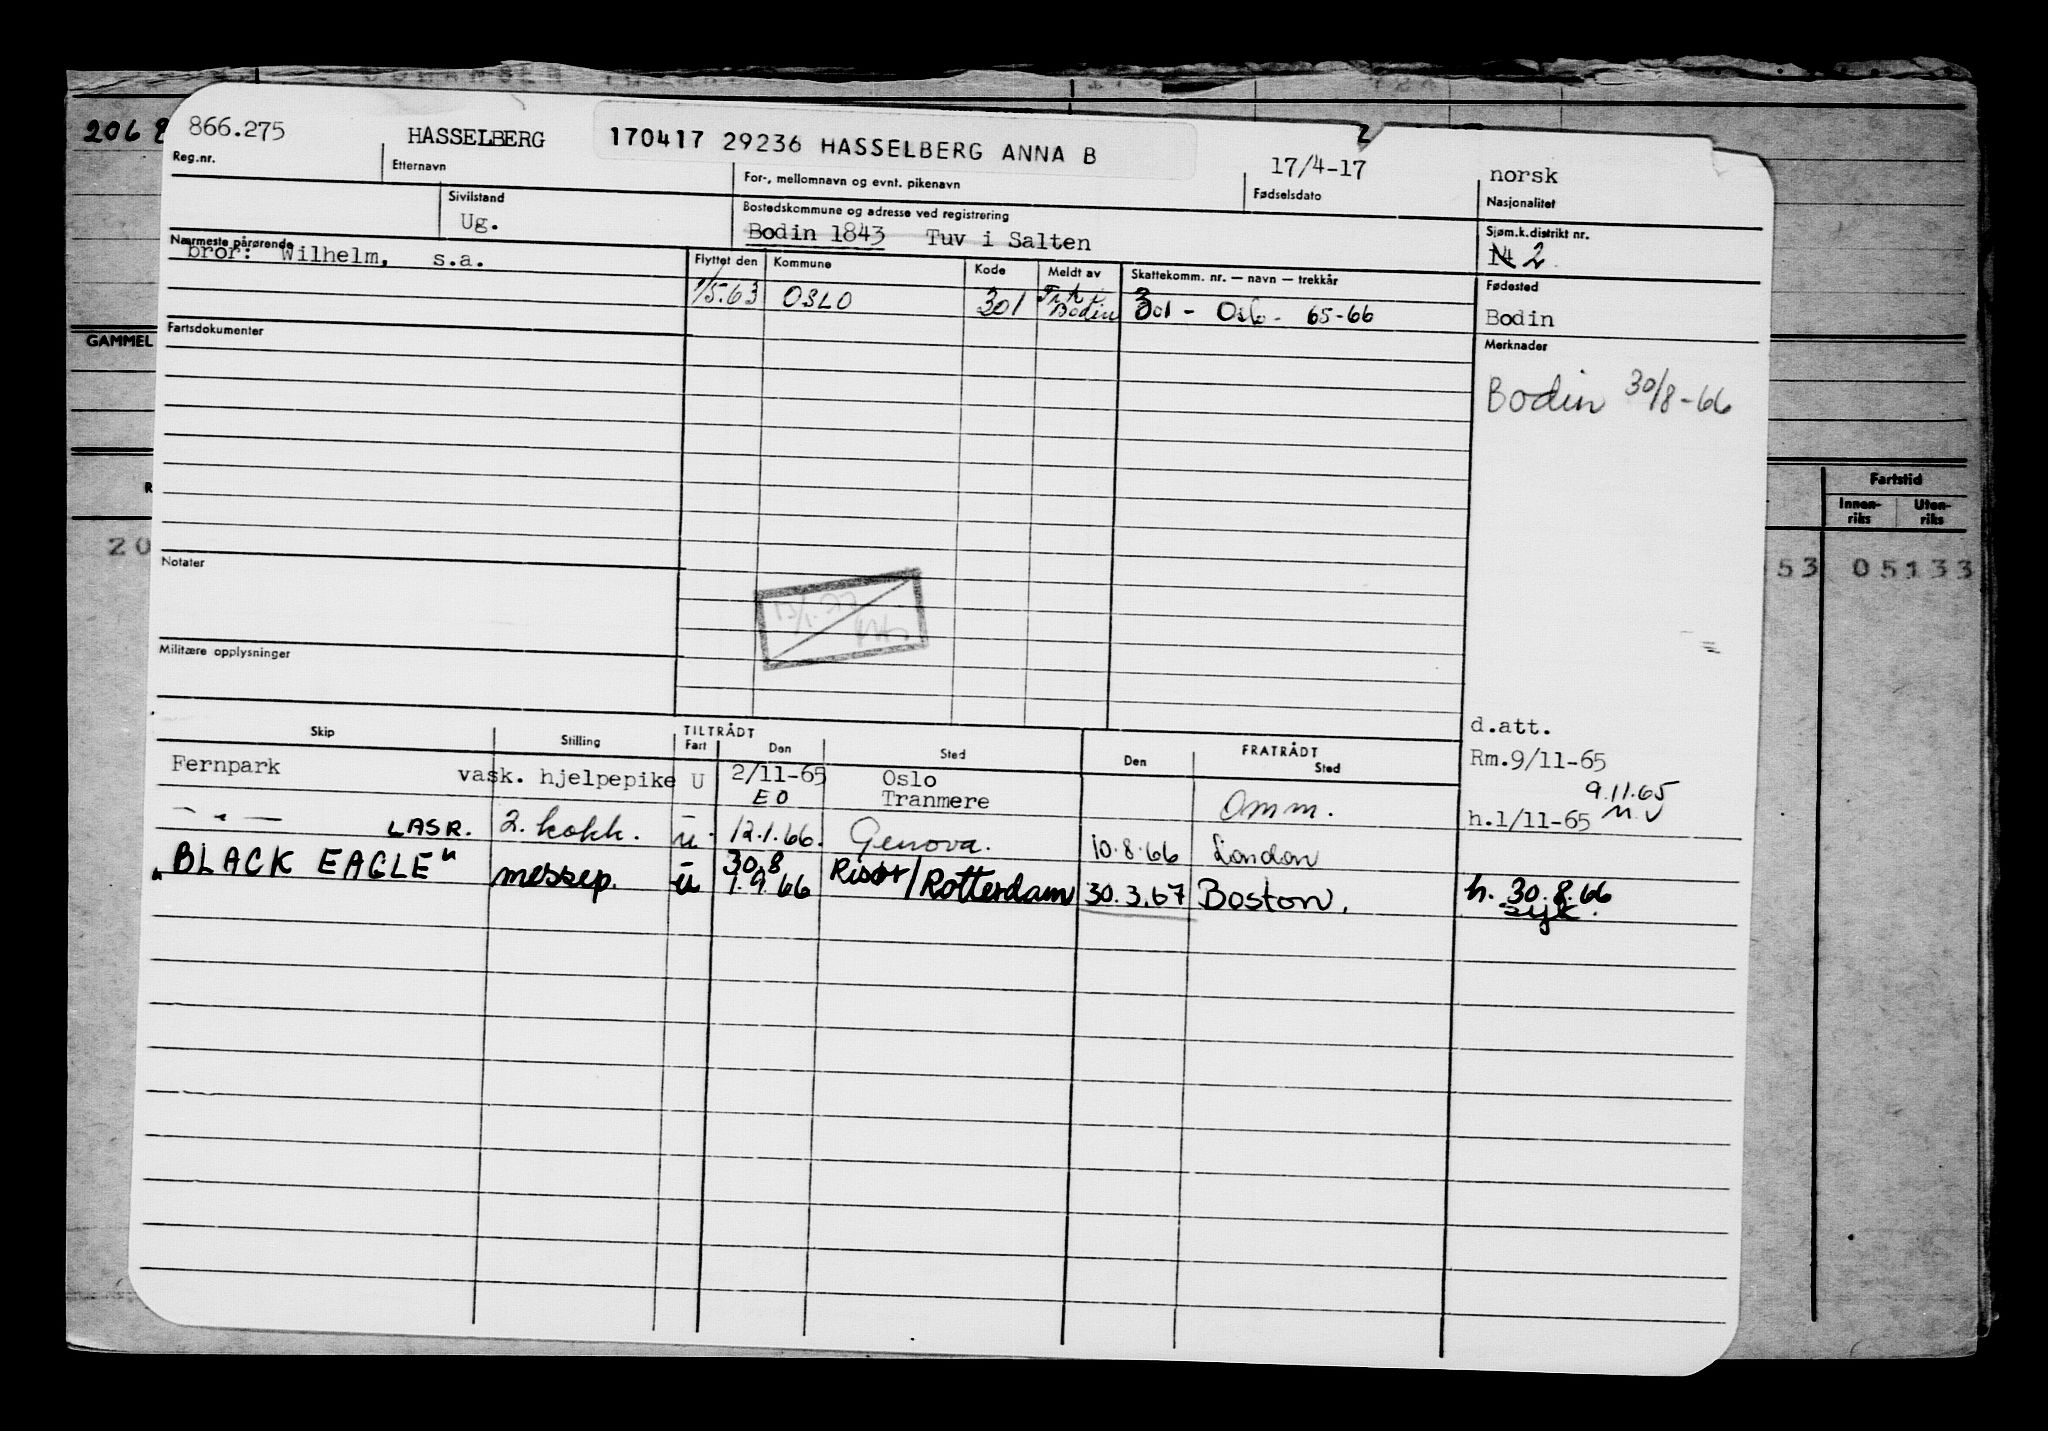 206 8
866.275 HASSELBERG 170417 29236 HASSELBERG ANNA B 17/4-17 norsk
Reg.nr. Etternavn For-, mellomnavn og evnt. pikenavn Fødselsdato Nasjonalitet
Sivilstand Bostedskommune og adresse ved registrering Sjøm.k.distrikt nr.
Ug. Bodin 1843 Tuv i Salten 2
Nærmeste pårørende Flyttet den Kommune Kode Meldt av Skattekomm. nr. — navn — trekkår Fødested
bror: Wilhelm, s.a.
1/5.63 OSLO 301 Bodin 301 - Oslo - 65-66 Bodin
Fartsdokumenter Merknader
GAMMEL
Bodin 30/8-66
Fartstid
Innen-riks Uten-riks
20 53 05133
Notater
Militære opplysninger
d.att.
Skip Stilling TILTRÅDT FRATRÅDT
Fart Den Sted Den Sted
Fernpark vask. hjelpepike U 2/11-65 Oslo Rm.9/11-65
E O Tranmere Omm. 9.11.65
h.1/11-65
— " — LASR. 2. kokk. u. 12.1.66. Genova. 10.8.66 London
"BLACK EAGLE" messep. u 30.8 1.9 66 Risør/Rotterdam 30.3.67 Boston. h. 30.8.66
syk.